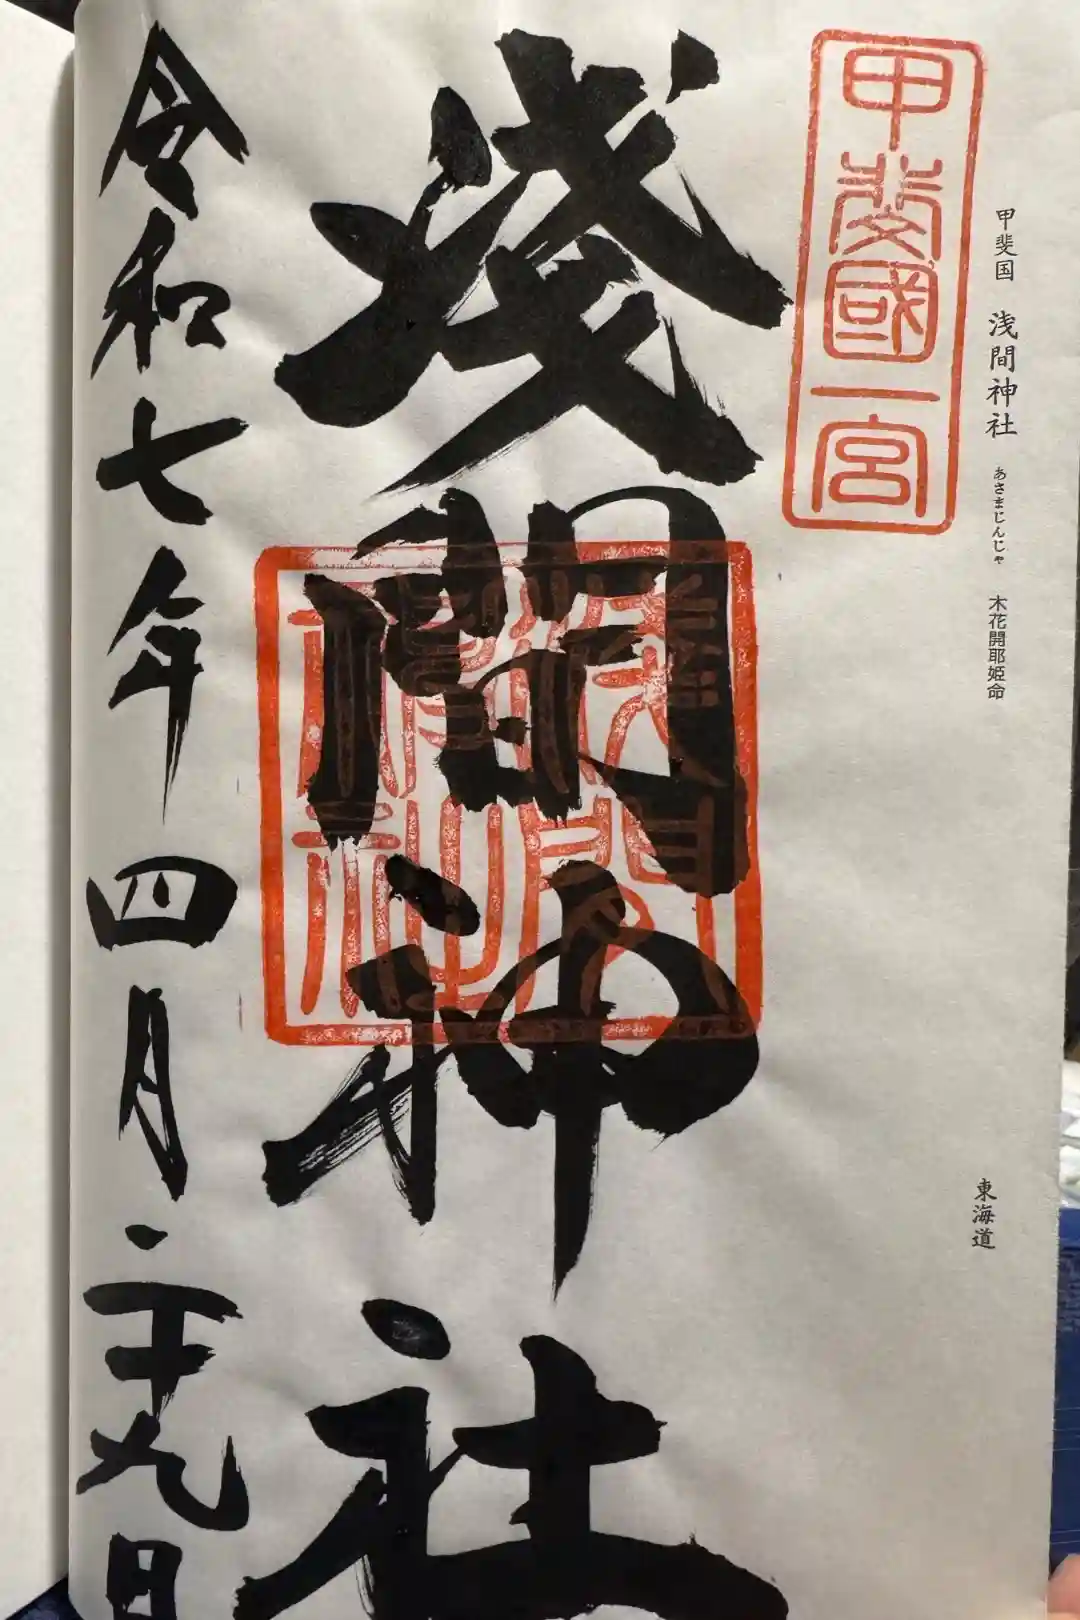 甲斐国 浅間神社 あさまじんじゃ 木花開耶姫命
東海道
甲斐國一宮
淺間神社
令和七年四月二十九日